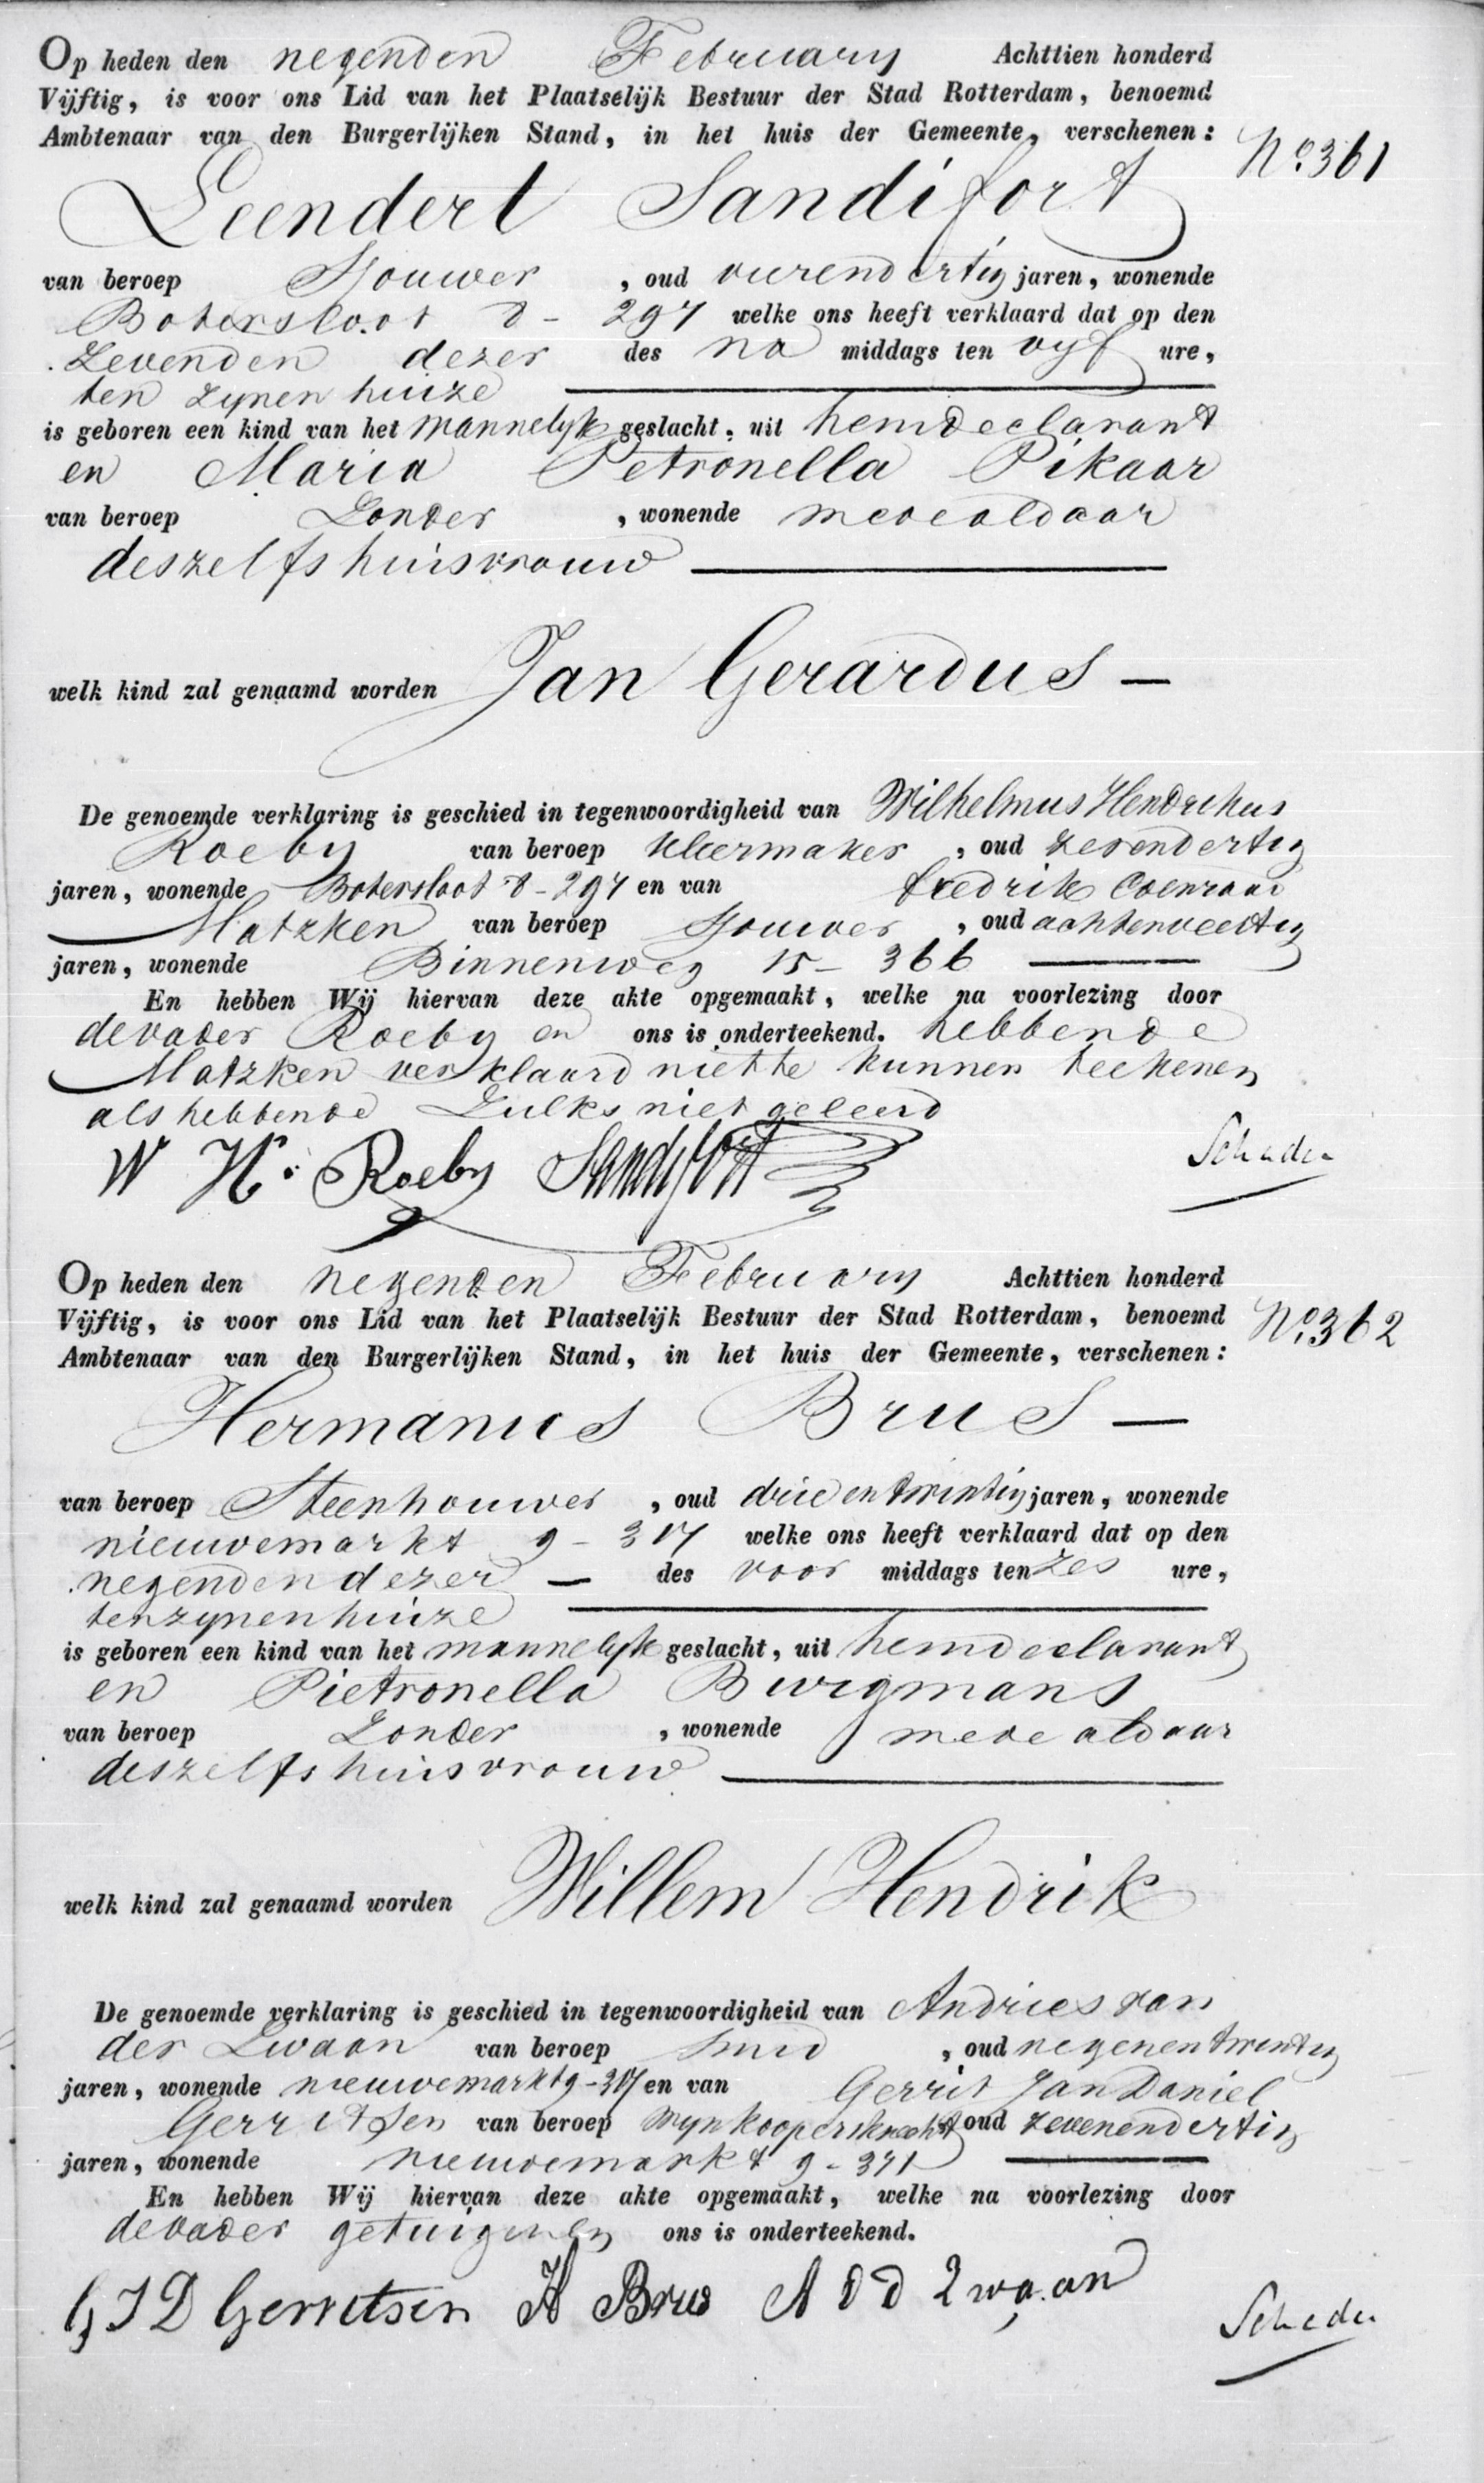 Op heden den negenden February Achttien honderd
Vijftig, is voor ons Lid van het Plaatselijk Bestuur der Stad Rotterdam, benoemd
Ambtenaar van den Burgerlijken Stand, in het huis der Gemeente, verschenen:
No. 361
Leendert Sandifort
van beroep Sjouwer, oud vierendertig jaren, wonende
Botersloot 8 - 297 welke ons heeft verklaard dat op den
Zevenden dezer des na middags ten vyf ure,
ten zynen huize
is geboren een kind van het mannelyk geslacht, uit hem declarant
en Maria Petronella Pikaar
van beroep Zonder, wonende mede aldaar
deszelfs huisvrouw
welk kind zal genaamd worden Jan Gerardus —
De genoemde verklaring is geschied in tegenwoordigheid van Wilhelmus Hendrikus
Roeby van beroep kleermaker, oud zesendertig
jaren, wonende Botersloot 8 - 297 en van fredrik Coenraad
Matzken van beroep Sjouwer, oud achtenveertig
jaren, wonende Binnenweg 15 - 366
En hebben Wij hiervan deze akte opgemaakt, welke na voorlezing door
de vader Roeby en ons is onderteekend. hebbende
Matzken verklaard niet te kunnen teekenen
als hebbende Zulks niet geleerd
W H. Roeby Sandifort
Op heden den negenden February Achttien honderd
Vijftig, is voor ons Lid van het Plaatselijk Bestuur der Stad Rotterdam, benoemd
Ambtenaar van den Burgerlijken Stand, in het huis der Gemeente, verschenen:
No. 362
Hermanus Brus —
van beroep Steenhouwer, oud drieentwintig jaren, wonende
nieuwemarkt 9 - 317 welke ons heeft verklaard dat op den
negenden dezer — des voor middags ten zes ure,
ten zynen huize
is geboren een kind van het mannelyk geslacht, uit hem declarant
en Pietronella Burgmans
van beroep Zonder, wonende mede aldaar
deszelfs huisvrouw
welk kind zal genaamd worden Willem Hendrik
De genoemde verklaring is geschied in tegenwoordigheid van Andries van
der Zwaan van beroep Smid, oud negenentwintig
jaren, wonende nieuwemarkt 9 - 317 en van Gerrit Jan Daniel
Gerritsen van beroep Wynkoopersknecht oud zevenendertig
jaren, wonende nieuwemarkt 9 - 371
En hebben Wij hiervan deze akte opgemaakt, welke na voorlezing door
de vader getuigen en ons is onderteekend.
G J D Gerritsen H Brus A v d Zwaan